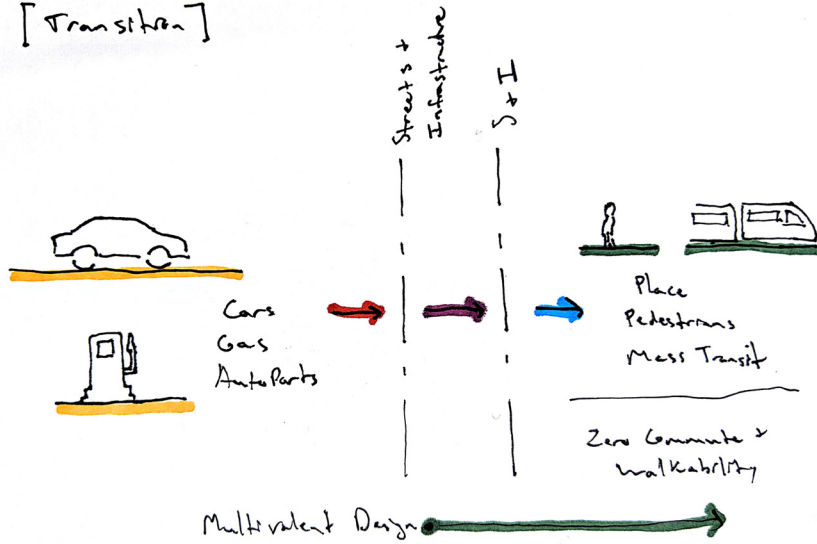 [Transition]
Streets +
Infrastructure
S + I
Cars
Gas
AutoParts
Place
Pedestrians
Mass Transit
Zero Commute +
Walkability
Multivalent Design